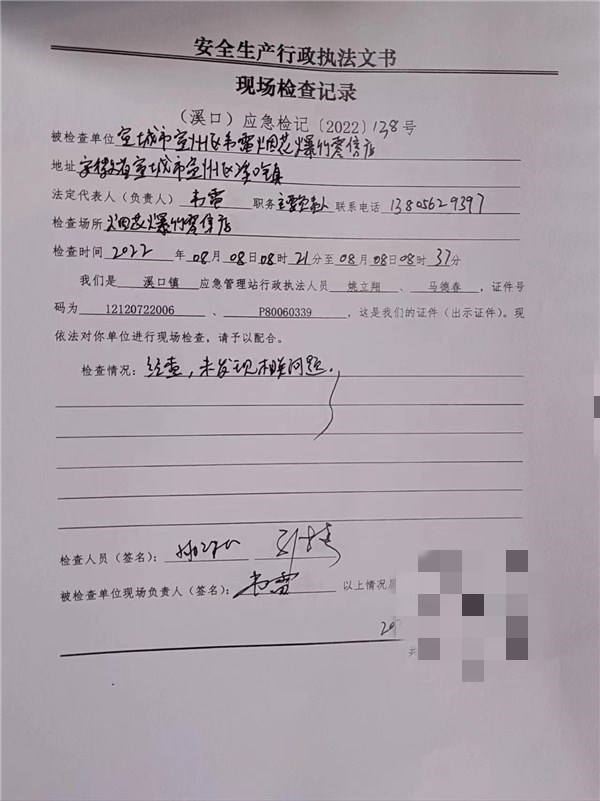 安全生产行政执法文书
现场检查记录
（溪口）应急检记〔2022〕138号
被检查单位 宣城市宣州区韦雷烟花爆竹零售店
地址 安徽省宣城市宣州区溪口镇
法定代表人（负责人） 韦雷 职务 主要负责人 联系电话 13805629397
检查场所 烟花爆竹零售店
检查时间 2022 年 08 月 08 日 08 时 21 分至 08 月 08 日 08 时 37 分
我们是 溪口镇 应急管理站行政执法人员 姚立翔 、 马德春 ，证件号
码为 12120722006 、 P80060339 ，这是我们的证件（出示证件）。现
依法对你单位进行现场检查，请予以配合。
检查情况： 经查，未发现相关问题。
检查人员（签名）：
被检查单位现场负责人（签名）： 韦雷 以上情况
共